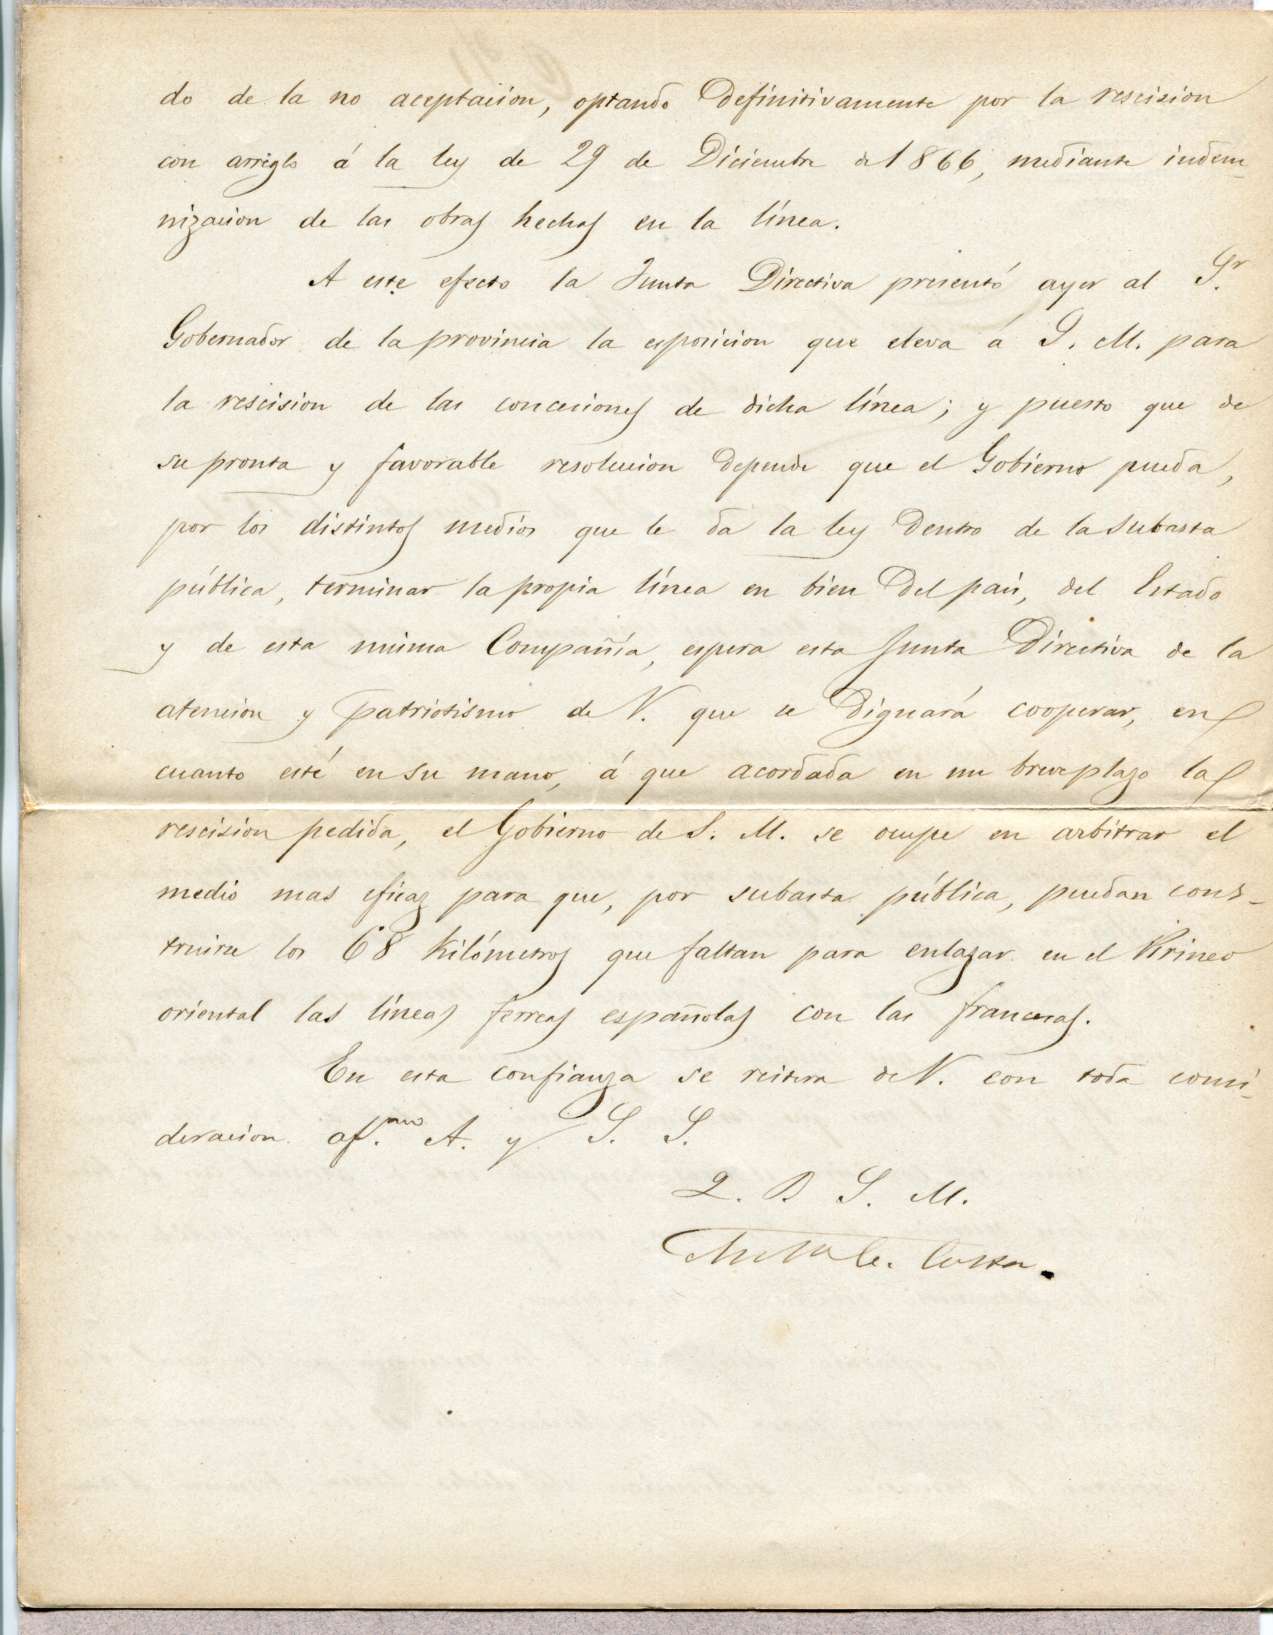 do de la no aceptacion, optando definitivamente por la rescision
con arreglo á la ley de 29 de Diciembre de 1866, mediante indem-
nizacion de las obras hechas en la línea.
A este efecto la Junta Directiva presentó ayer al Sr.
Gobernador de la provincia la esposicion que eleva á S. M. para
la rescision de las concesiones de dicha línea; y puesto que de
su pronta y favorable resolucion depende que el Gobierno pueda,
por los distintos medios que le da la ley dentro de la subasta
pública, terminar la propia línea en bien del pais, del Estado
y de esta misma Compañía, espera esta Junta Directiva de la
atencion y patriotismo de V. que se dignará cooperar, en
cuanto esté en su mano, á que acordada en un breve plazo la
rescision pedida, el Gobierno de S. M. se ocupe en arbitrar el
medio mas eficaz para que, por subasta pública, puedan cons-
truirse los 68 kilómetros que faltan para enlazar en el Pirineo
oriental las líneas ferreas españolas con las francesas.
En esta confianza se reitera de V. con toda consi-
deracion af.mo A. y S. S.
Q. B S. M.
Costa.